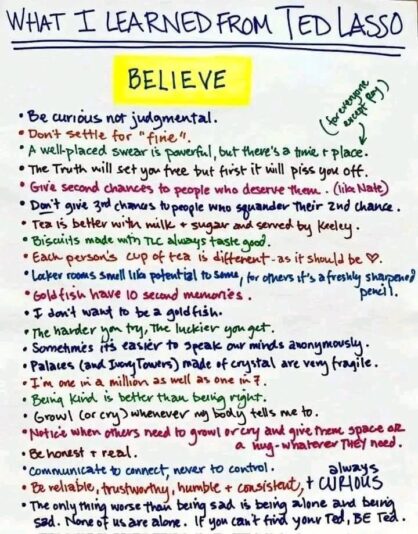 WHAT I LEARNED FROM TED LASSO
BELIEVE
(for everyone
except Roy)
• Be curious not judgmental.
• Don't settle for "fine".
• A well-placed swear is powerful, but there's a time + place.
• The Truth will set you free but first it will piss you off.
• Give second chances to people who deserve them. (like Nate)
• Don't give 3rd chances to people who squander their 2nd chance.
• Tea is better with milk + sugar and served by Keeley.
• Biscuits made with TLC always taste good.
• Each person's cup of tea is different - as it should be ♡.
• Locker rooms smell like potential to some, for others it's a freshly sharpened
pencil.
• Goldfish have 10 second memories.
• I don't want to be a goldfish.
• The harder you try, The luckier you get.
• Sometimes it's easier to speak our minds anonymously.
• Palaces (and Ivory Towers) made of crystal are very fragile.
• I'm one in a million as well as one in 7.
• Being Kind is better than being right.
• Growl (or cry) whenever my body tells me to.
• Notice when others need to growl or cry and give them space OR
a hug - whatever THEY need.
• Be honest + real.
• Communicate to connect, never to control.
• Be reliable, trustworthy, humble + consistent, + always CURIOUS
• The only thing worse than being sad is being alone and being
sad. None of us are alone. If you can't find your Ted, BE Ted.